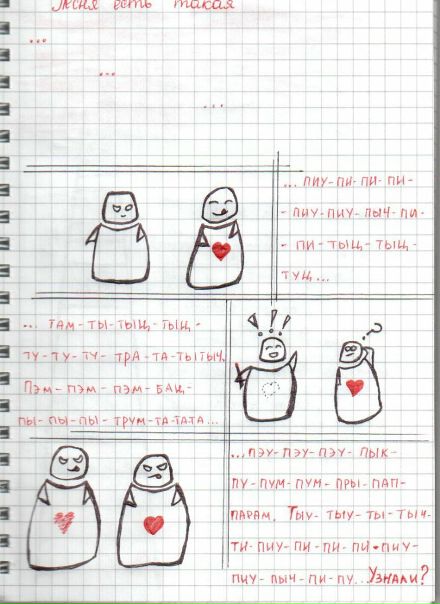 есть такая
...
...
...
... пиу-пи-пи-пи-
-пиу-пиу-пыч-пи-
-пи-тыщ-тыщ-
тущ...
... там-ты-тыщ-тыщ-
ту-ту-ту-тра-та-тытыч.
Пэм-пэм-пэм-бац-
пы-пы-пы-трум-та-тата...
...пэу-пэу-пэу-пык-
пу-пум-пум-пры-пап-
парам. Тыу-тыу-ты-тыч-
ти-пиу-пи-пи-пи-пиу-
пиу-пыч-пи-пу...Узнали?